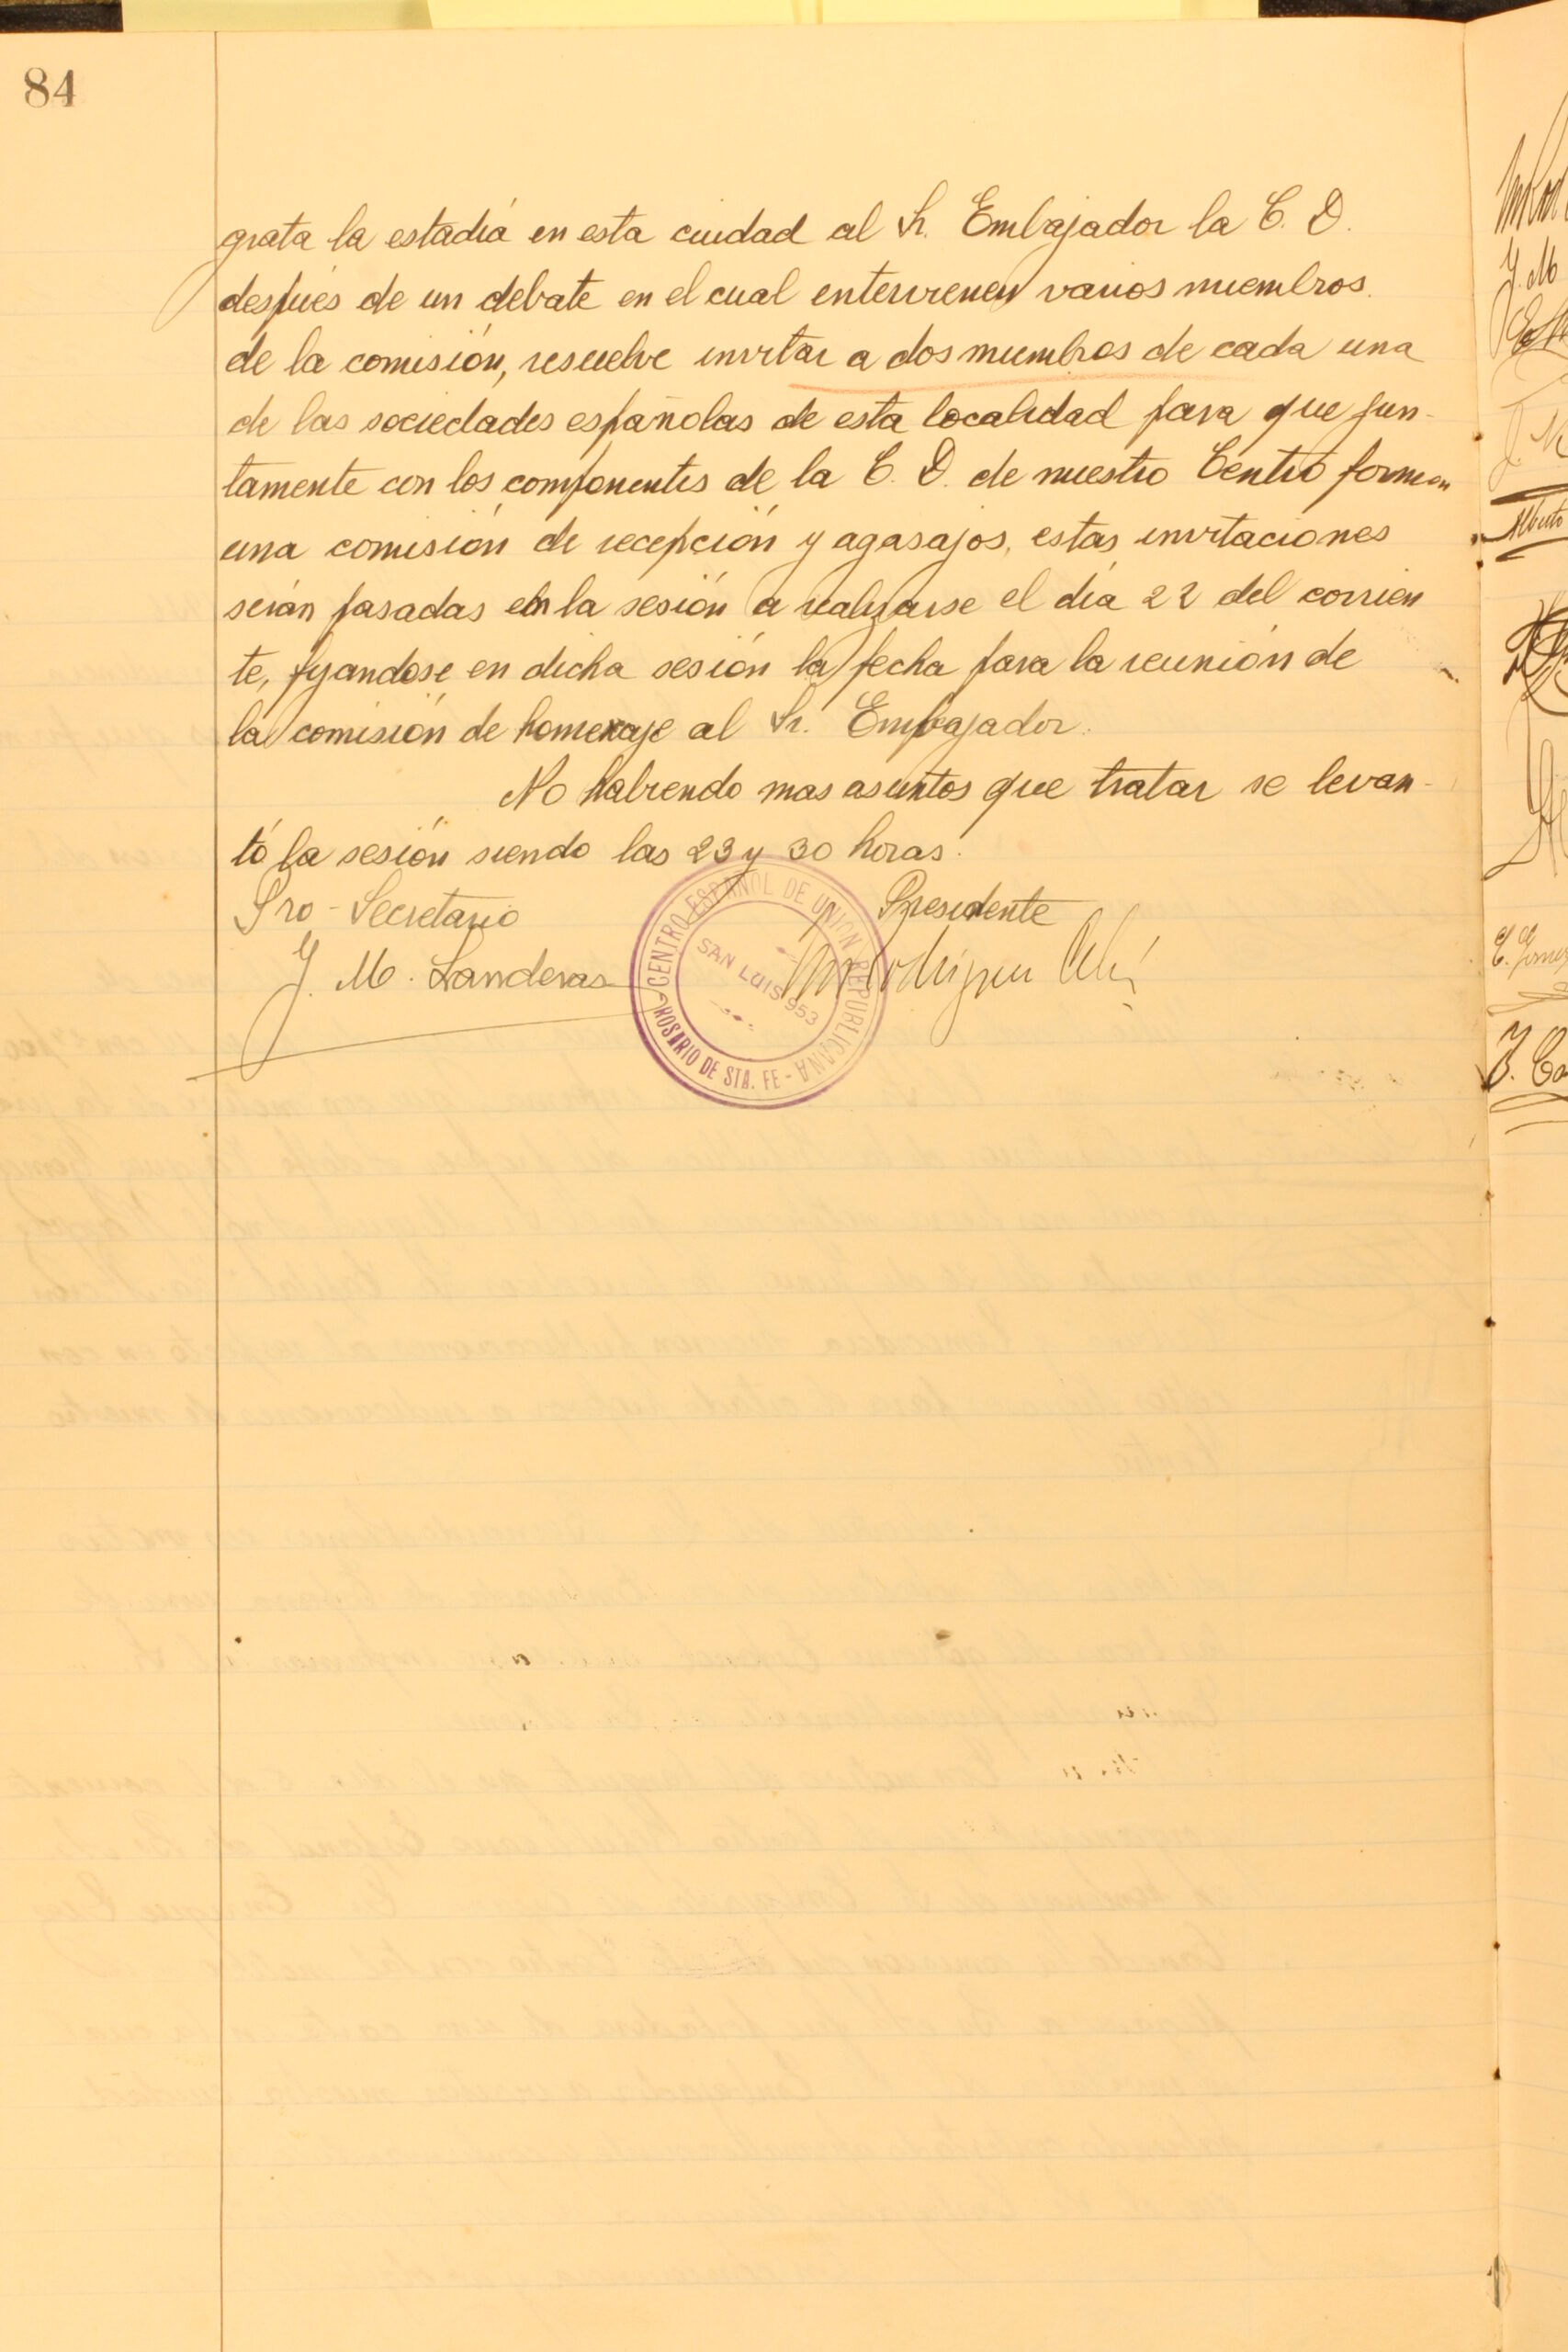 84
grata la estadía en esta ciudad al Sr. Embajador la C. D.
después de un debate en el cual entervienen varios miembros
de la comisión, resuelve invitar a dos miembros de cada una
de las sociedades españolas de esta localidad para que jun-
tamente con los componentes de la C. D. de nuestro Centro formen
una comisión de recepción y agasajos, estas invitaciones
serán pasadas en la sesión a realizarse el día 22 del corrien
te, fijandose en dicha sesión la fecha para la reunión de
la comisión de homenaje al Sr. Embajador.
No habiendo mas asuntos que tratar se levan-
tó la sesión siendo las 23 y 30 horas.
Pro-Secretario
Presidente
J. M. Landeras
MRodríguez
CENTRO ESPAÑOL DE UNION REPUBLICANA
SAN LUIS 953
ROSARIO DE STA. FE
J. M
Alberto
E. Gomez
J. Ca